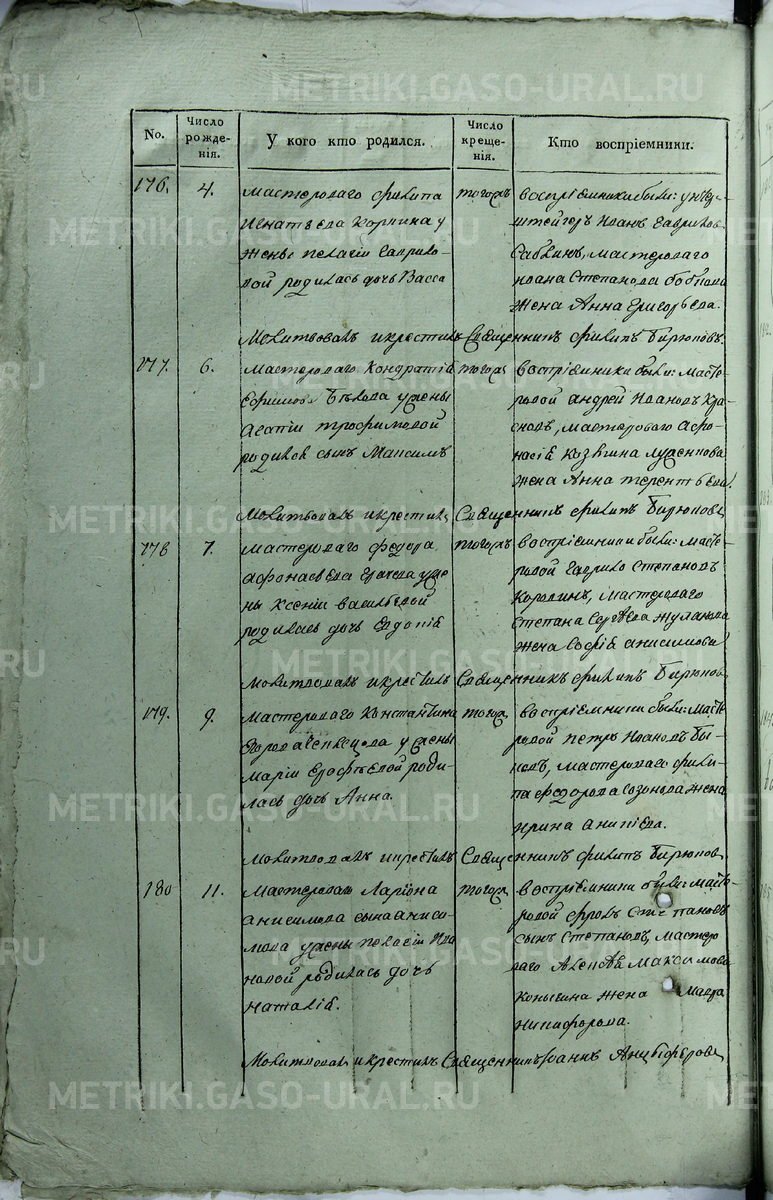 METRIKI.GASO-URAL.RU
No.
Число рожде- нія.
У кого кто родился.
Число креще- нія.
Кто воспріемники.
176.
4.
мастероваго Филипа
Игнатьева Корпина у
жены Пелагіи Гаврило-
вой родилась дочь Васса
тогожъ
воспріемники были: унтеръ
штейгеръ Иванъ Гавриловъ
Сабкинъ, мастероваго
Ивана Степанова
жена Анна Григорьева.
Молитвовалъ и крестилъ Священникъ Филипъ Бирюковъ.
177.
6.
мастероваго Кондратія
Ефимова Бѣлова у жены
Агапіи Трофимовой
родился сынъ Максимъ
тогожъ
воспріемники были: масте-
ровой Андрей Ивановъ Кра-
сновъ, мастероваго Афо-
насія
жена Анна Терентьева.
Молитвовалъ и крестилъ Священникъ Филипъ Бирюковъ
178
7.
мастероваго Федора
Афонасьева Грачева у же-
ны Ксеніи Васильевой
родилась дочь Евдокія
тогожъ
воспріемники были: масте-
ровой Гаврило Степановъ
Королинъ, мастероваго
Степана Сергѣева Жуланова
жена Софія Анисимова
Молитвовалъ и крестилъ Священникъ Филипъ Бирюковъ
179.
9.
мастероваго Константина
у жены
Маріи Ерофѣевой роди-
лась дочь Анна.
тогожъ
воспріемники были: масте-
ровой Петръ Ивановъ Бы-
ковъ, мастероваго Фили-
па Федорова Созонова жена
Ирина Аникіева.
Молитвовалъ и крестилъ Священникъ Филипъ Бирюковъ
180
11.
мастероваго Ларіона
Анисимова сына Аниси-
мова у жены Пелагіи Ива-
новой родилась дочь
Наталія.
тогожъ
воспріемники были: масте-
ровой Фролъ Степановъ
сынъ Степановъ, мастеро-
ваго Алексѣя Максимова
Копысина жена Марфа
Никифорова.
Молитвовалъ и крестилъ Священникъ Іоаннъ Анцыферовъ